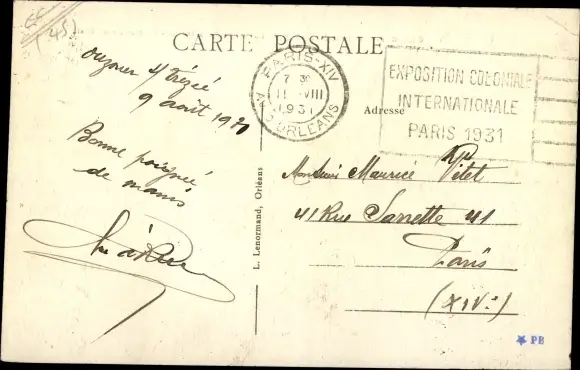 (45)
CARTE POSTALE
Ouzouer s/ Trézée
9 août 1931
Bonne poignée
de mains
PARIS-XIV
7 30
11 VIII
1931
AV. D'ORLEANS
EXPOSITION COLONIALE
INTERNATIONALE
PARIS 1931
Adresse
L. Lenormand, Orléans
Monsieur Maurice Vitet
41 Rue Sarrette 41
Paris
(XIVe)
PB